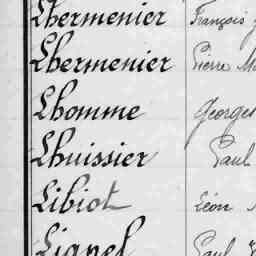 Lhermenier François
Lhermenier Pierre
Lhomme Georges
Lhuissier Paul
Libiot Léon
Lignel Paul